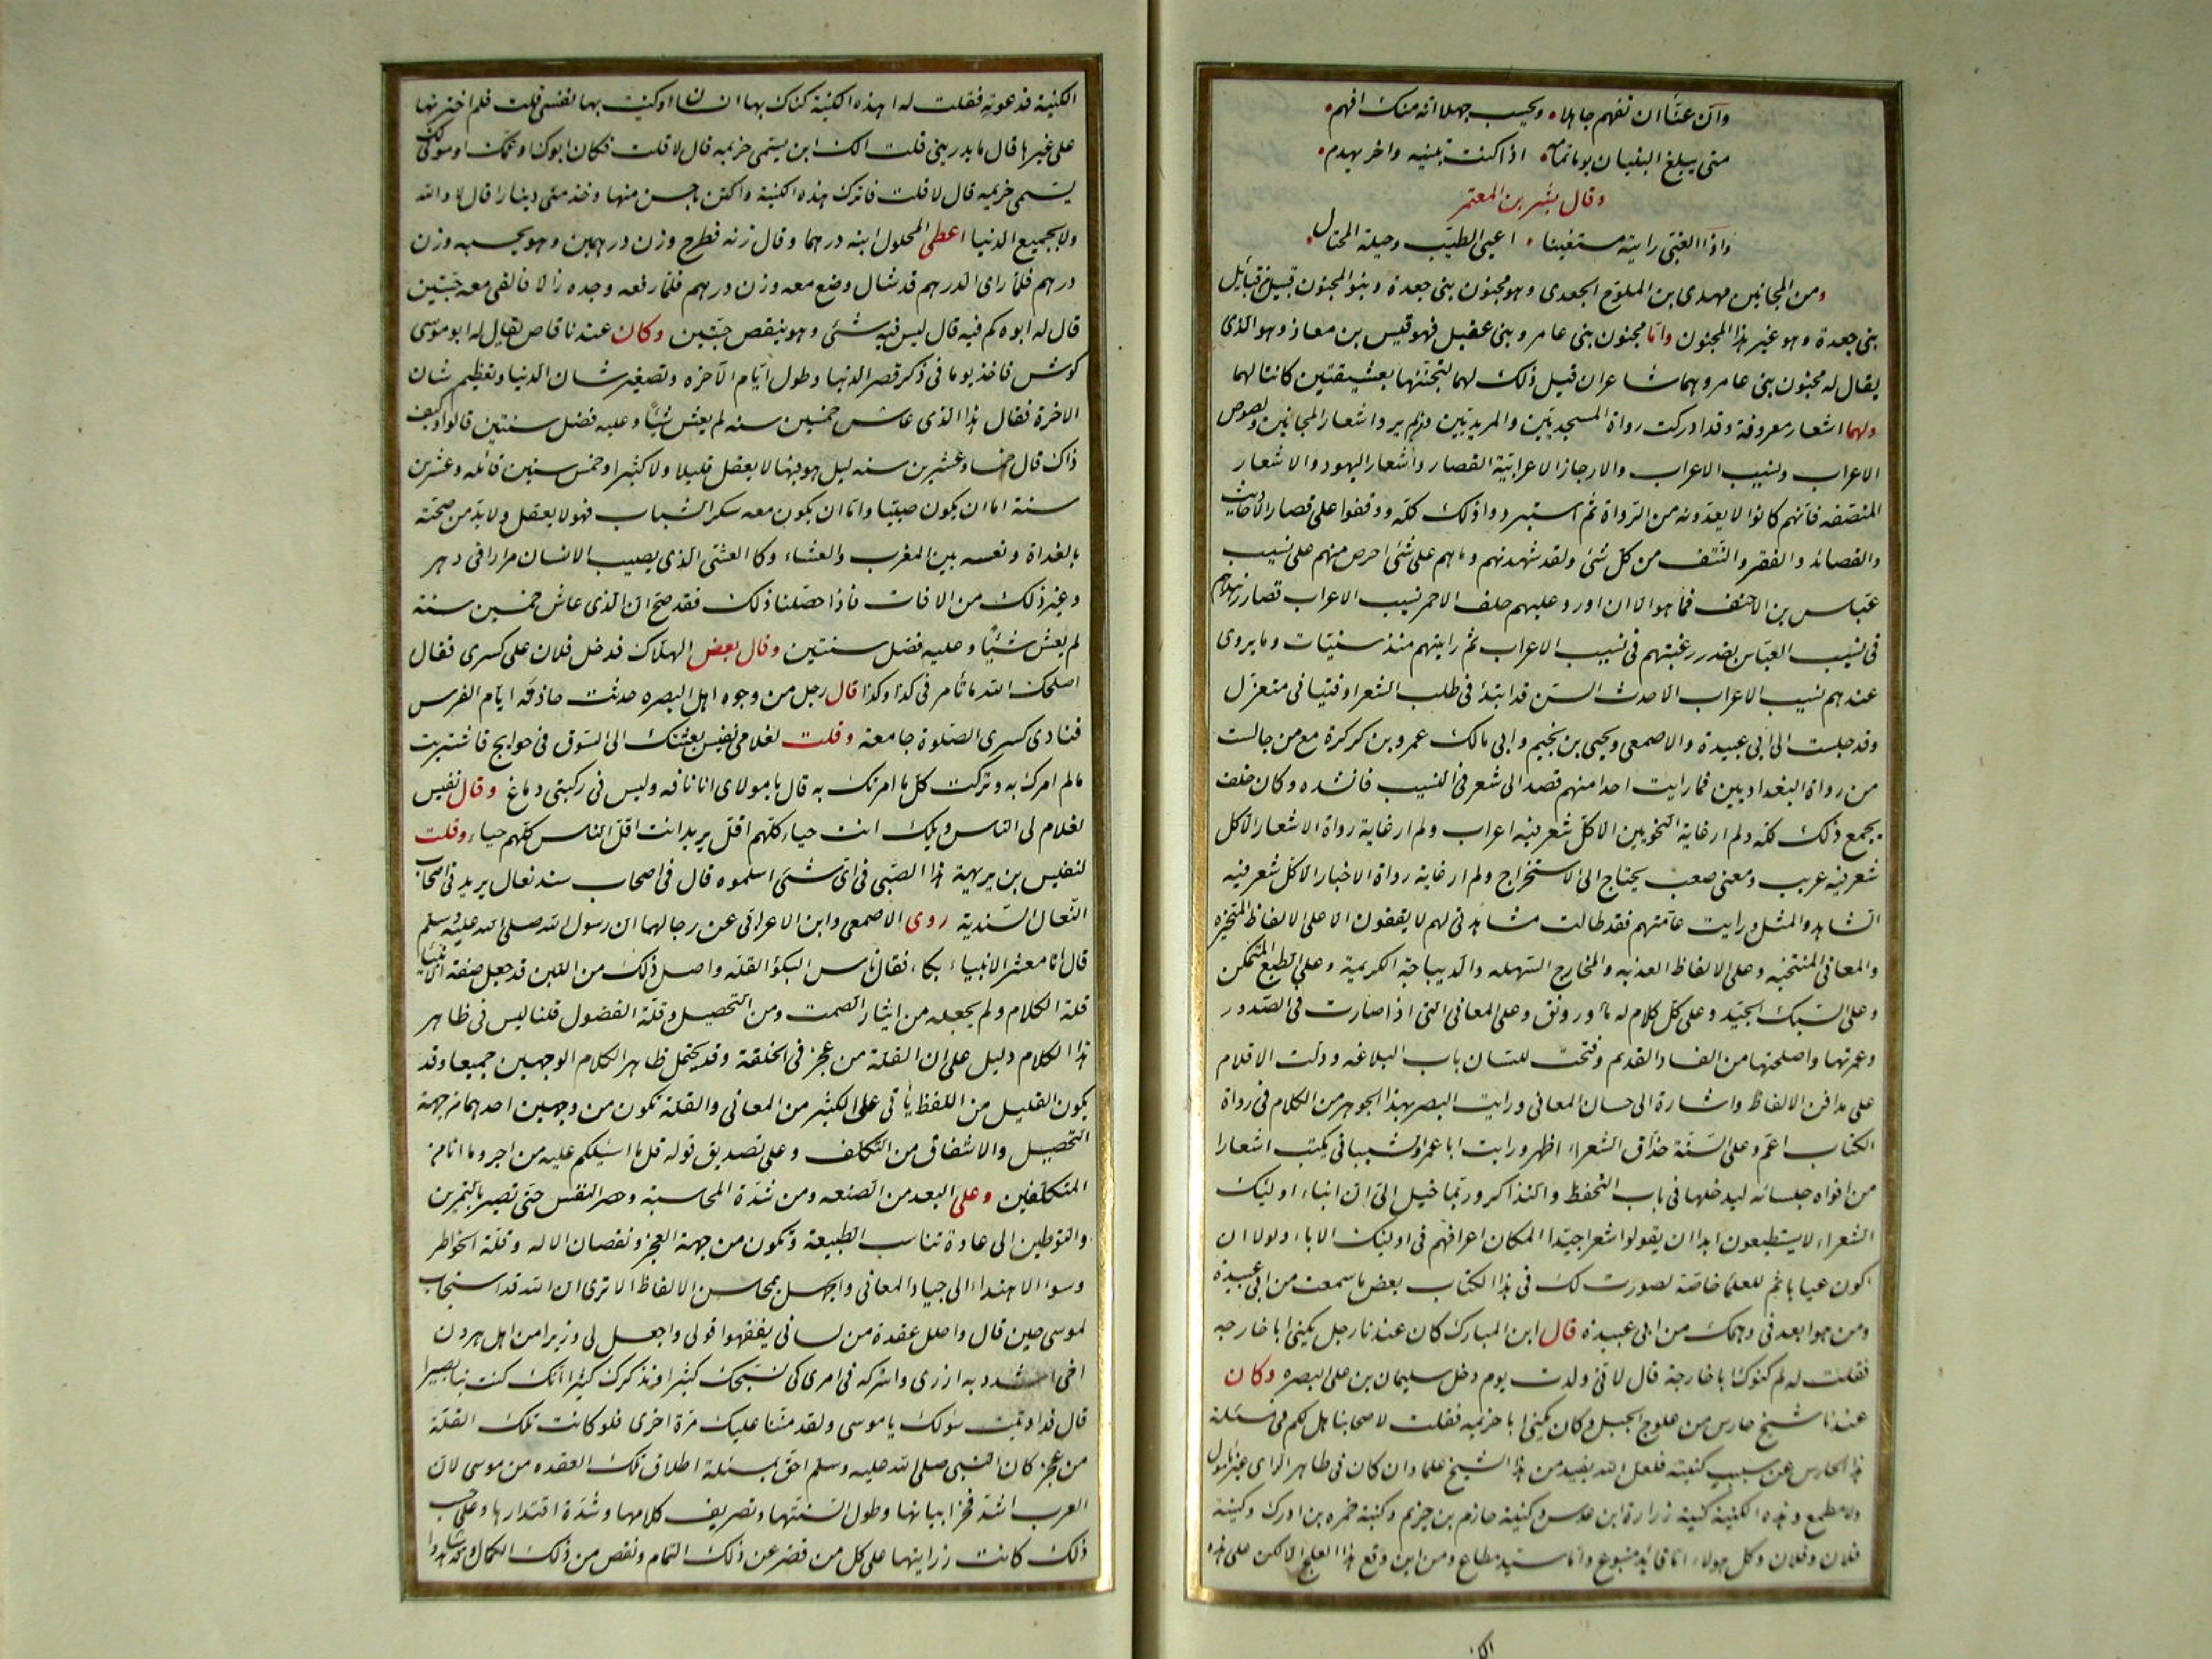 وان عناا ان تفهم جاهلا ٠ ويحسب جهلا انه منك افهم ٠
متى يبلغ البنيان يوما تمامه ٠ اذا كنت تبنيه واخر يهدم ٠
وقال بشر بن المعتمر
واذا الغبى رايته مستغنيا ٠ اعيى الطبيب وحيلة المحتال ٠
ومن المجانين مهدى بن الملوح الجعدى وهو مجنون بنى جعدة وبنو المجنون قبيل من قبائل
بنى جعدة وهو غير هذا المجنون واما مجنون بنى عامر وبنى عقيل فهو قيس بن معاذ وهو الذى
يقال له مجنون بنى عامر وهما شاعران قيل ذلك لهما لتجننهما بعشيقتين كانتا لهما
ولهما اشعار معروفة وقد ادركت رواة المسجديين والمربديين ومن لم يرو اشعار المجانين ولصوص
الاعراب ونسيب الاعراب والارجاز الاعرابية القصار واشعار اليهود والاشعار
المنصفه فانهم كانوا لا يعدونه من الرواة ثم استبردوا ذلك كله ووقفوا على قصار الاحاديث
والقصائد والفقر والنتف من كل شئ ولقد شهدتهم وما هم على شئ احرص منهم على نسيب
عباس بن الاحنف فما هو الا ان اورد عليهم خلف الاحمر نسيب الاعراب فصار زهدهم
فى نسيب العباس بقدر رغبتهم فى نسيب الاعراب ثم رايتهم منذ سنيات وما يروى
عندهم نسيب الاعراب الا حدث السن قد ابتدأ فى طلب الشعر او فتيانى متغزل
وقد جلست الى ابى عبيدة والاصمعى ويحيى بن نجيم وابى مالك عمرو بن كركرة مع من جالست
من رواة البغداديين فما رايت احدا منهم قصد الى شعر فى النسيب فانشده وكان خلف
يجمع ذلك كله ولم ار غاية النحويين الا كل شعر فيه اعراب ولم ار غاية رواة الاشعار الا كل
شعر فيه غريب ومعنى صعب يحتاج الى الاستخراج ولم ار غاية رواة الاخبار الا كل شعر فيه
الشاهد والمثل ورايت عامتهم فقد طالت مشاهدتى لهم لا يقفون الا على الالفاظ المتخيره
والمعانى المنتخبه وعلى الالفاظ العذبه والمخارج السهله والديباجة الكريمة وعلى الطبع المتمكن
وعلى السبك الجيد وعلى كل كلام له ماء ورونق وعلى المعانى التى اذا صارت فى الصدور
وعمرتها واصلحتها من الفساد القديم وفتحت للسان باب البلاغه ودلت الاقلام
على مدافن الالفاظ واشارة الى حسان المعانى ورايت البصر بهذا الجوهر من الكلام فى رواة
الكتاب اعم وعلى السنة حذاق الشعراء اظهر ورايت ابا عمرو الشيبانى يكتب اشعارا
من افواه جلسائه ليدخلها فى باب التحفظ والتذاكر وربما خيل الى ان ابناء اوليك
الشعراء لا يستطيعون ابدا ان يقولوا شعرا جيدا المكان اعراقهم فى اوليك الاباء ولولا ان
اكون عيابا ثم للعلما خاصة لصورت لك فى هذا الكتاب بعض ما سمعت من ابى عبيدة
ومن هو ابعد فى وهمك من ابى عبيدة قال ابن المبارك كان عندنا رجل يكنى ابا خارجه
فقلت له لم كنوك ابا خارجة قال لانى ولدت يوم دخل سليمان بن على البصره وكان
عندنا شيخ حارس من علوج الجبل وكان يكنى ابا خزيمه فقلت لاصحابنا هل لكم فى مسئلة
هذا الحارس عن سبب كنيته فلعل الله يفيد من هذا الشيخ علما وان كان فى ظاهر الراى غير مامول
ولا مطمع وهذه الكنية كنية زرارة ابن عدس وكنية حازم بن خزيم وكنية حمزه بن ادرك وكنية
فلان وفلان وكل هولاء اما قائد متبوع واما سيد مطاع ومن اين وقع هذا العلج الالكن على هذه
الكن
الكنية فدعوته فقلت له اهذه الكنية كناك بها انسان او كنيت بها نفسى قلت فلم اخترتها
على غيرها قال ما يدرينى قلت الك ابن يسمى خزيمه قال لا قلت فكان ابوك او عمك او مولى لك
يسمى خزيمه قال لا قلت فاترك هذه الكنية واكتن باحسن منها وخذ منى دينارا قال لا والله
ولا بجميع الدنيا اعطى المحلول ابنه درهما وقال زنه فطرح وزن درهمين وهو يحسبه وزن
درهم فلما راى الدرهم قد شال وضع معه وزن درهم فلما رفعه وجده زالا فالقى معه حبتين
قال له ابوه كم فيه قال ليس فيه شئ وهو ينقص حبتين وكان عندنا قاص يقال له ابو موسى
كوش فاخذ يوما فى ذكر قصر الدنيا وطول ايام الاخره وتصغير شان الدنيا وتعظيم شان
الاخرة فقال هذا الذى عاش خمسين سنه لم يعش شيئا وعليه فضل سنتين قالوا وكيف
ذاك قال خمسا وعشرين سنه ليل هو فيها لا يعقل قليلا ولا كثيرا وخمس سنين قائله وعشرين
سنة اما ان يكون صبيا واما ان يكون معه سكر الشباب فهو لا يعقل ولا بد من صحته
بالغداة ونعسه بين المغرب والعشاء وكا العشى الذى يصيب الانسان مرارا فى دهر
وغير ذلك من الافات فاذا حصلنا ذلك فقد صح ان الذى عاش خمسين سنة
لم يعش شيئا وعليه فضل سنتين وقال بعض الهلاك فدخل فلان على كسرى فقال
اصلحك الله ما تأمر فى كذا وكذا قال رجل من وجوه اهل البصره حدثت حادثه ايام الفرس
فنادى كسرى الصلوة جامعة وقلت لغلامى نفيس بعثتك الى السوق فى حوايج فاشتريت
مالم امرك به وتركت كل ما امرتك به قال يا مولاى انا ناقه وليس فى ركبتى دماغ وقال نفيس
لغلام لى الناس ويلك انت حياء كلهم اقل يريد انت اقل الناس كلهم حياء وقلت
لنفيس بن بريهية هذا الصبى فى اى شئ اسلموه قال فى اصحاب سند نعال يريد فى اصحاب
النعال السندية روى الاصمعى وابن الاعرابى عن رجالهما ان رسول الله صلى الله عليه وسلم
قال انا معشر الانبياء بكاء فقال ناس البكؤ القله واصل ذلك من اللبن قد جعل صفة الانبيا
قلة الكلام ولم يجعله من ايثار الصمت ومن التحصيل وقلة الفضول قلنا ليس فى ظاهر
هذا الكلام دليل على ان القلة من عجز فى الخلقة وقد يحتمل ظاهر الكلام الوجهين جميعا وقد
يكون القليل من اللفظ يأتى على الكثير من المعانى والقلة تكون من وجهين احدهما من جهة
التحصيل والاشفاق من التكلف وعلى تصديق قوله قل ما اسئلكم عليه من اجر وما انا من
المتكلفين وعلى البعد من الصنعه ومن شدة المحاسبة وحصر النفس حتى تصير بالتمرين
والتوطين الى عادة تناسب الطبيعة وتكون من جهة العجز ونقصان الاله وقلة الخواطر
وسوء الاهتداء الى جياد المعانى والجهل بمحاسن الالفاظ الا ترى ان الله قد استجاب
لموسى حين قال واحلل عقدة من لسانى يفقهوا قولى واجعل لى وزيرا من اهلى هرون
اخى اشدد به ازرى واشركه فى امرى كى نسبحك كثيرا ونذكرك كثيرا انك كنت بنا بصيرا
قال قد اوتيت سؤلك يا موسى ولقد مننا عليك مرة اخرى فلو كانت تلك القلة
من عجز كان النبى صلى الله عليه وسلم احق بمسئلة اطلاق تلك العقده من موسى لان
العرب اشد فخرا ببيانها وطول السنتها وتصريف كلامها وشدة اقتدارها وعلى حسب
ذلك كانت زرايتها على كل من قصر عن ذلك التمام ونقص من ذلك الكمال وقد شاهدوا